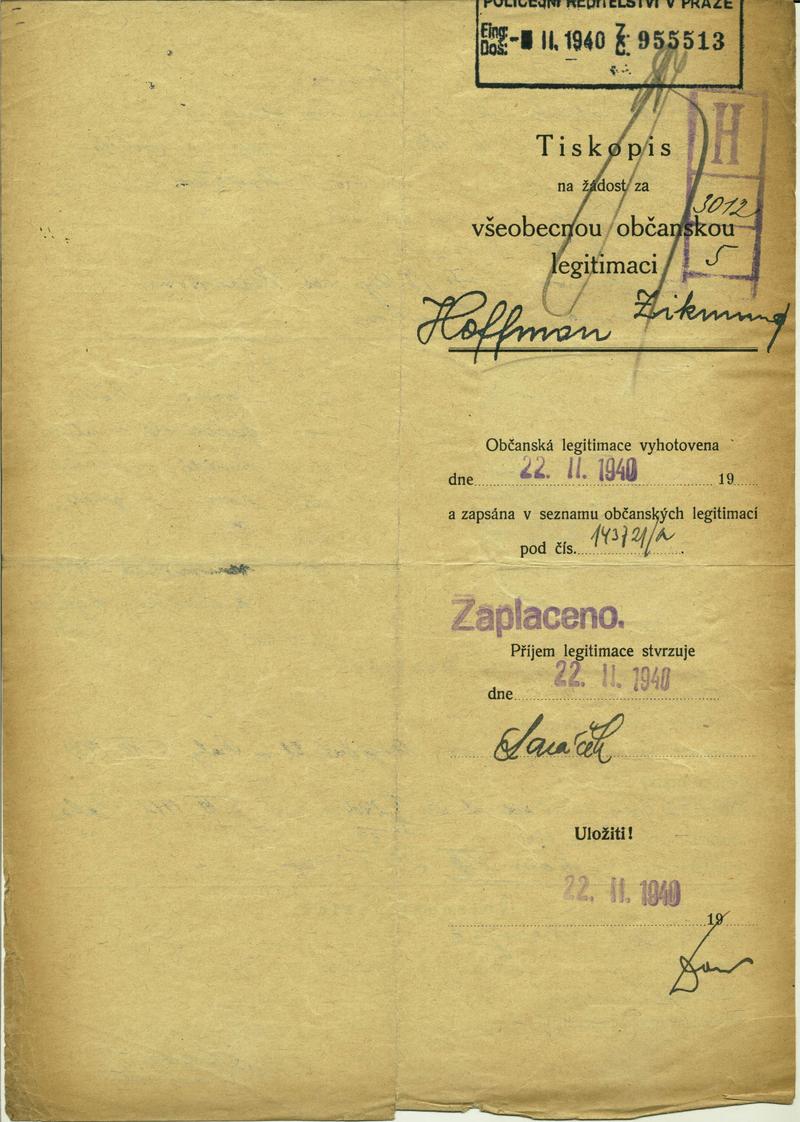 POLICEJNÍ ŘEDITELSTVÍ V PRAZE
Eing. Doš. - II. 1940 Z. Č. 955513
H
Tiskopis
na žádost za
3012
všeobecnou občanskou
5
legitimaci
Hoffman Zikmund
Občanská legitimace vyhotovena
dne 22. II. 1940 19
a zapsána v seznamu občanských legitimací
pod čís. 143721/a
Zaplaceno.
Příjem legitimace stvrzuje
22. II. 1940
dne
Uložiti!
22. II. 1940
19